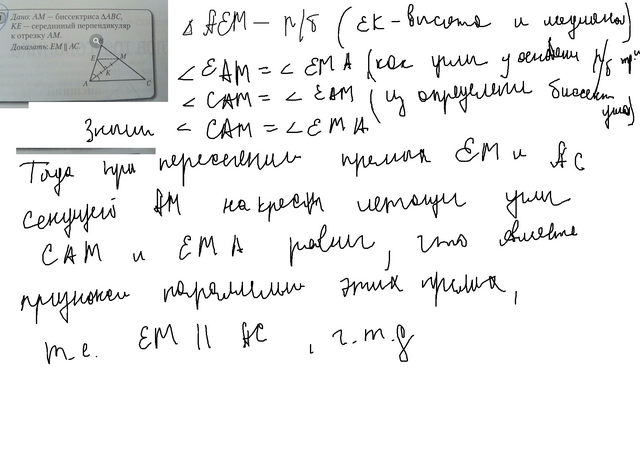 Дано: AM — биссектриса ΔABC,
KE — серединный перпендикуляр
к отрезку AM.
Доказать: EM ∥ AC.
B
E M
K
A C
Δ AEM — р/б (EK - высота и медиана)
∠EAM = ∠EMA (как углы у основания р/б тр.)
∠CAM = ∠EAM (из определения биссект
угла)
Значит ∠CAM = ∠EMA
Тогда при пересечении прямых EM и AC
секущей AM накрест лежащие углы
CAM и EMA равны, что является
признаком параллельности этих прямых,
т.е. EM || AC, ч.т.д